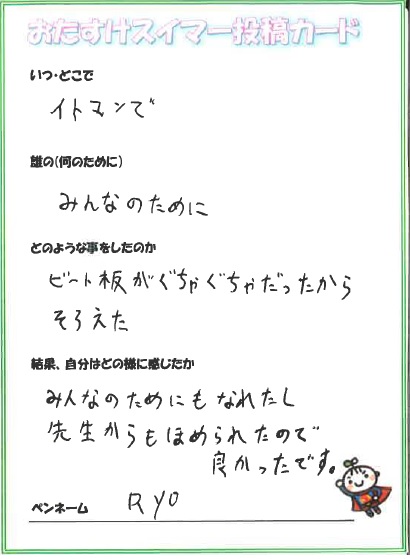 おたすけスイマー投稿カード
いつ・どこで
イトマンで
誰の(何のために)
みんなのために
どのような事をしたのか
ビート板がぐちゃぐちゃだったから
そろえた
結果、自分はどの様に感じたか
みんなのためにもなれたし
先生からもほめられたので
良かったです。
ペンネーム RYO